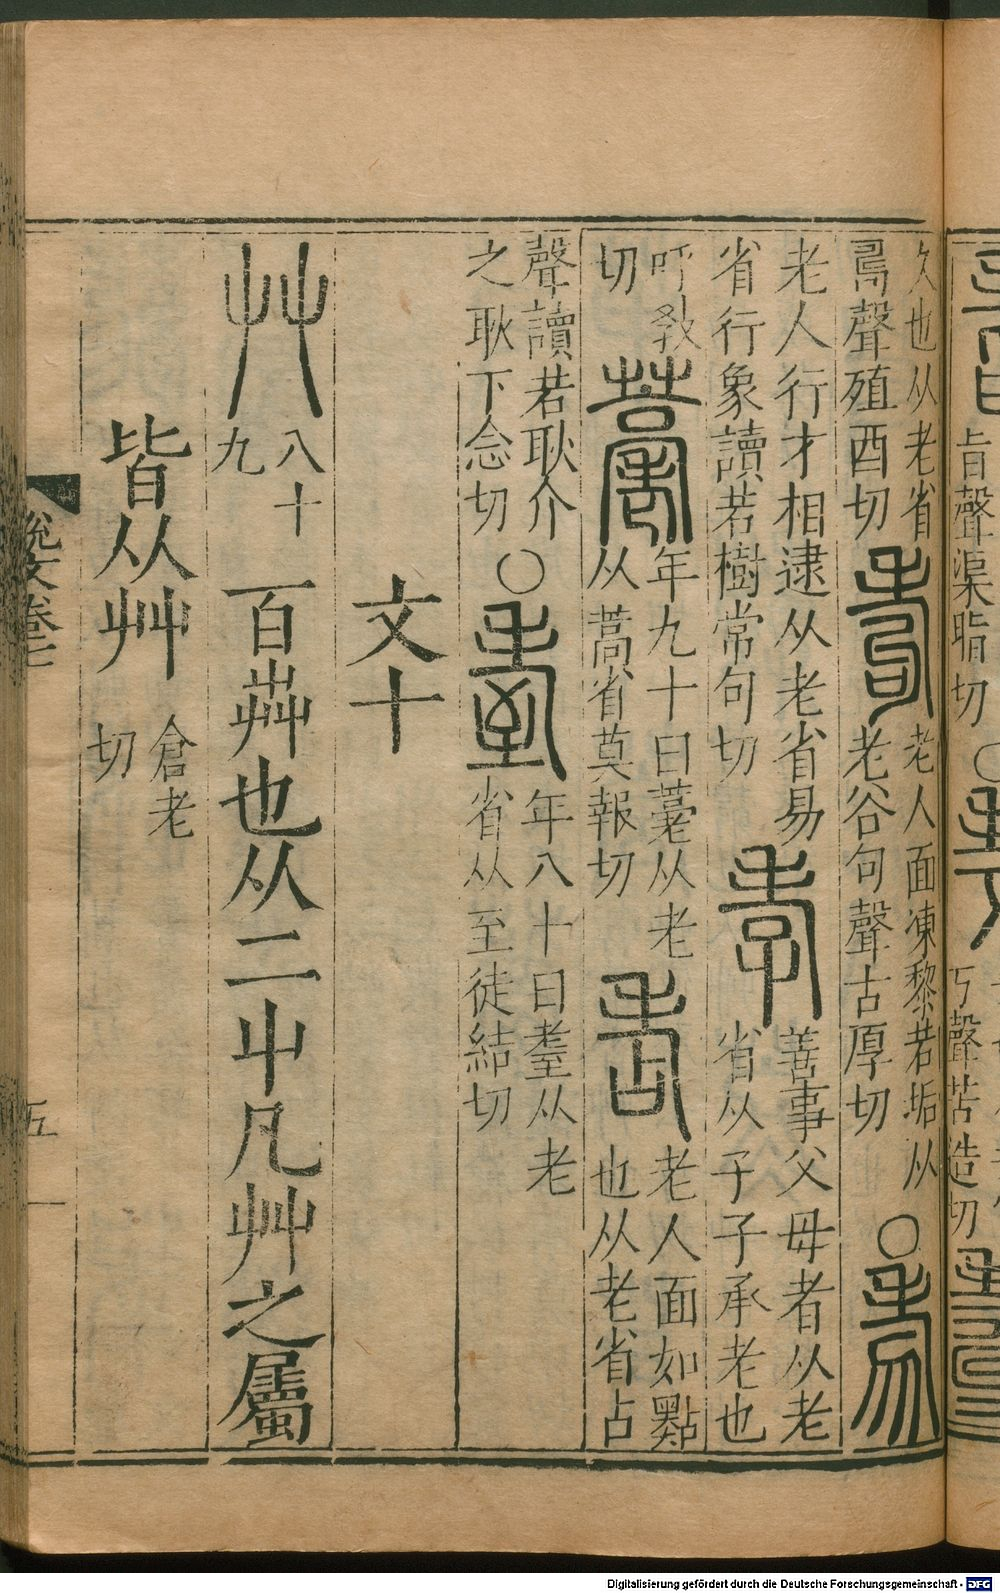 旨聲渠脂切○
丂聲苦造切
久也从老省
𠷎聲殖酉切
老人面凍黎若垢从
老省句聲古厚切
○
老人行才相逮从老省易
省行象讀若樹常句切
善事父母者从老
省从子子承老也
呼教
切
年九十曰薹从老
从蒿省莫報切
老人面如點
也从老省占
聲讀若耿介
之耿下念切
○
年八十曰耋从老
省从至徒結切
文十
艸 八十
九 百芔也从二屮凡艸之屬
皆从艸 倉老
切
說文卷七 五
Digitalisierung gefördert durch die Deutsche Forschungsgemeinschaft - DFG